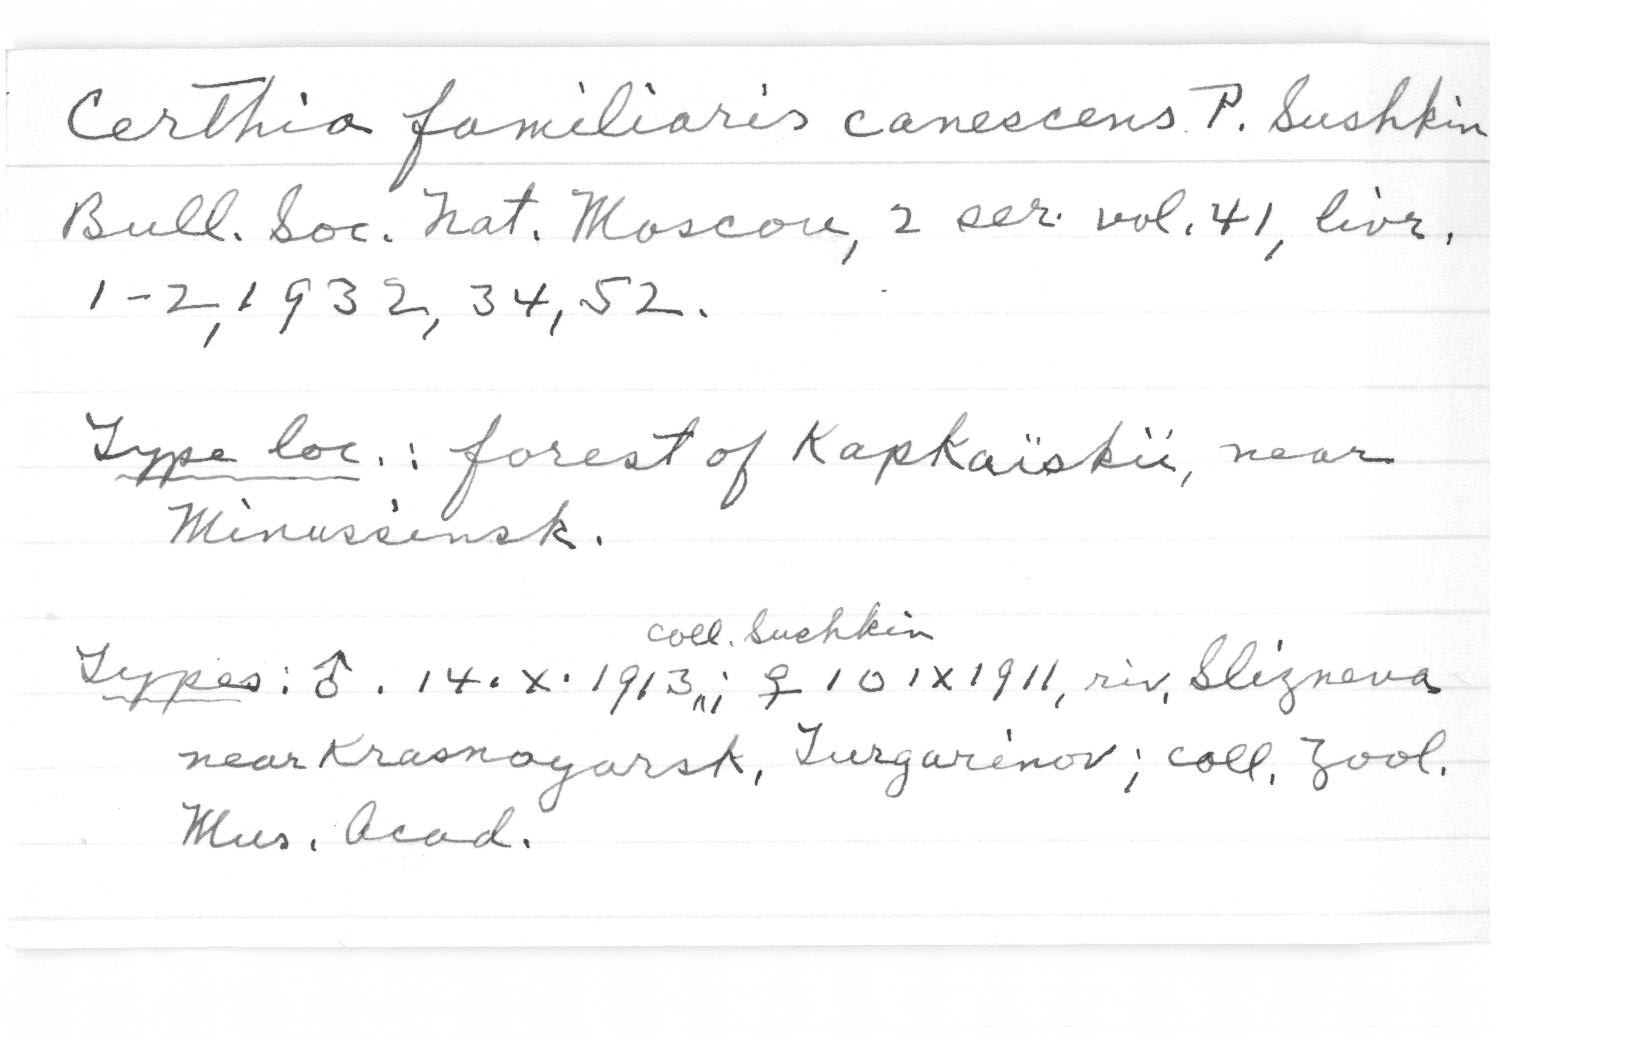 Certhia familiaris canescens P. Sushkin
Bull. Soc. Nat. Moscou, 2 ser. vol. 41, livr.
1-2, 1932, 34, 52.
Type loc.: forest of Kapkaïskiï, near
Minussinsk.
coll. Sushkin
Types: ♂. 14. X. 1913,,; ♀ 10 IX 1911, riv. Slizneva
near Krasnoyarsk, Turgarinov; coll. Zool.
Mus. Acad.